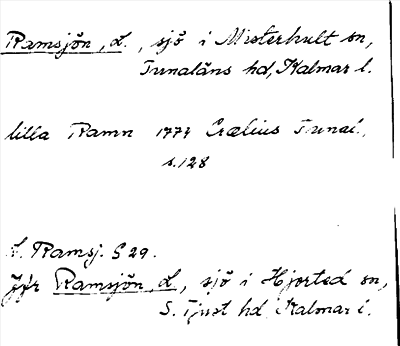 Ramsjön, L., sjö i Misterhult sn,
Tunaläns hd, Kalmar l.
lilla Ramn 1774 Crælius Tunal.,
s. 128
L. Ramsj. S 29.
Jfr Ramsjön, L., sjö i Hjorted sn,
S. Tjust hd Kalmar l.